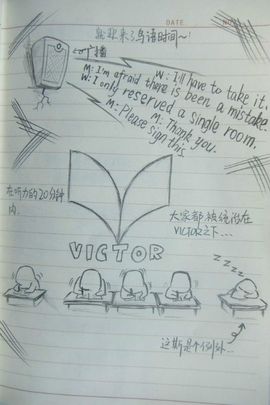 DATE
NO.
欢迎来了鸟语时间~!
广播
W: I'll have to take it.
M: I'm afraid there is been a mistake.
W: I only reserved a single room.
M: Thank you.
M: Please sign this
在听力的20分钟内,
大家都被统治在
VICTOR之下...
VICTOR
zzzz
这斯是个例外...